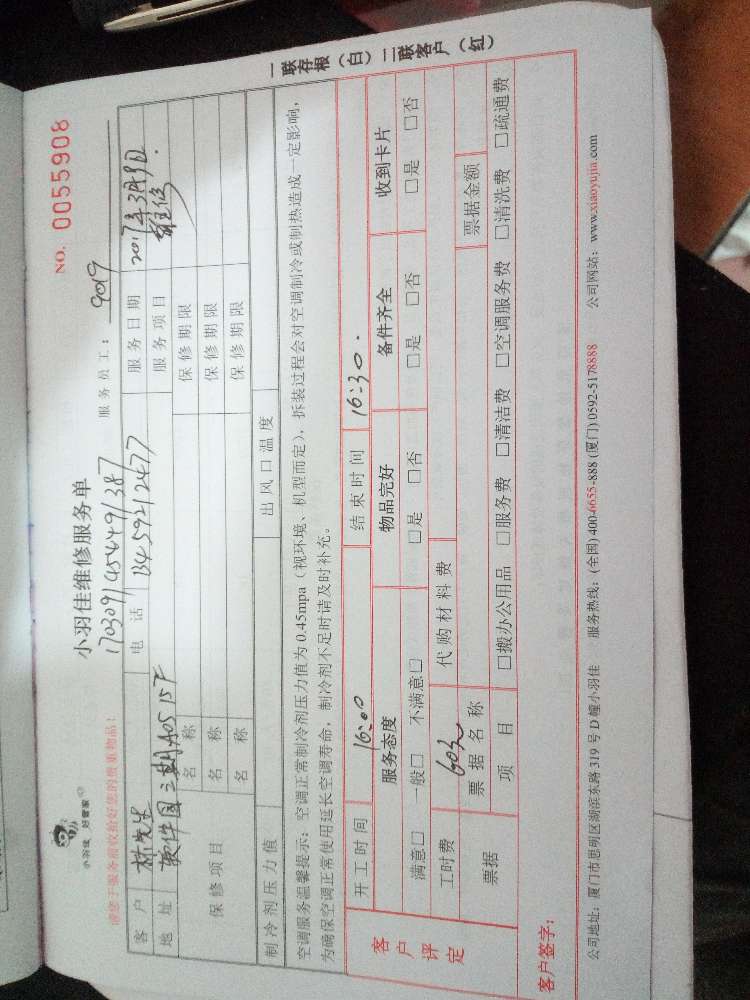 小羽佳 好管家
小羽佳维修服务单
NO. 0055908
请您于服务前收拾好您的贵重物品!
1703091454491387
服务员工: 9019
客户 林先生 电话 13459212477 服务日期 2017年3月9日
地址 软件园二期A05 15F 服务项目
保修项目 名称 保修期限
名称 保修期限
名称 保修期限
制冷剂压力值 出风口温度
空调服务温馨提示:空调正常制冷剂压力值为 0.45mpa(视环境、机型而定),拆装过程会对空调制冷或制热造成一定影响,
为确保空调正常使用延长空调寿命,制冷剂不足时请及时补充。
开工时间 16:00 结束时间 16:30.
客户评定 服务态度 物品完好 备件齐全 收到卡片
满意□ 一般□ 不满意□ □是 □否 □是 □否 □是 □否
工时费 60元 代购材料费
票据 票据名称 票据金额
项目 □搬办公用品 □服务费 □清洁费 □空调服务费 □清洗费 □疏通费
客户签字:
公司地址:厦门市思明区湖滨东路 319 号 D 幢小羽佳 服务热线:(全国) 400-6655-888 (厦门) 0592-5178888 公司网站:www.xiaoyujia.com
一联存根(白)二联客户(红)